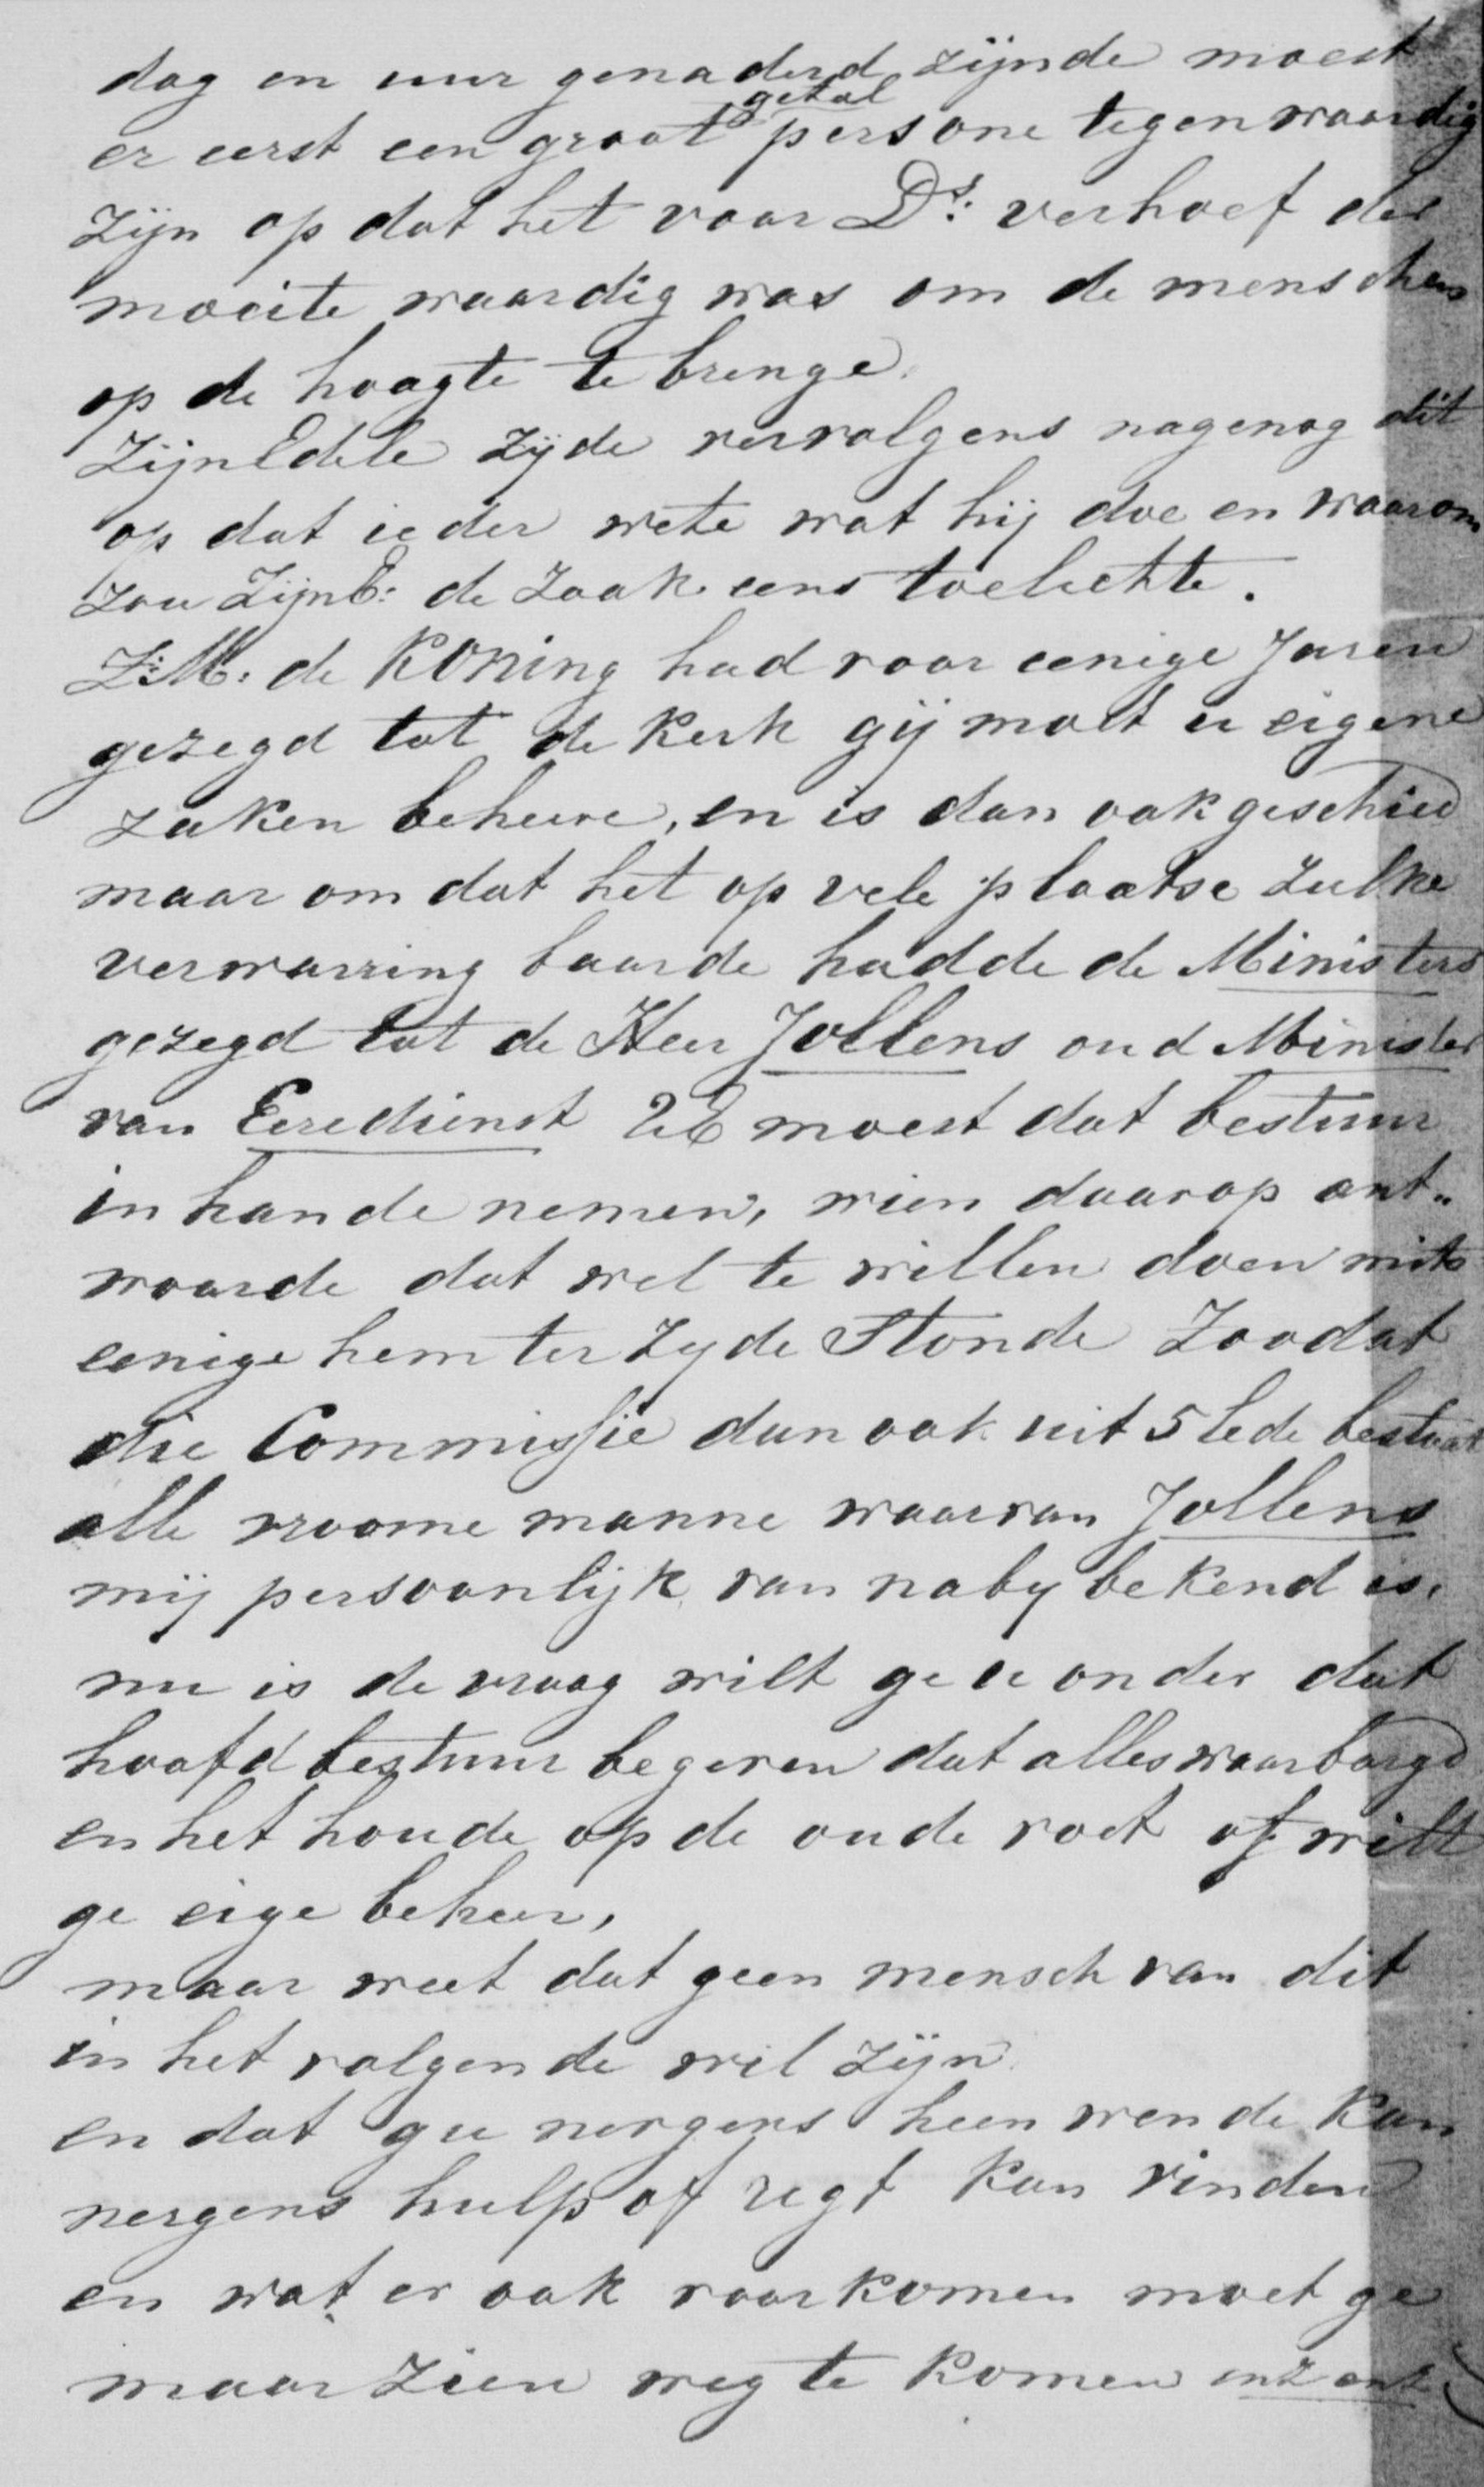 dag en uur genaderd zijnde moest
er eerst een groot getal persone tegenwoordig
zijn op dat het voor Ds: verhoef de
moeite waardig was om de menschen
op de hoogte te brenge.
ZijnEdele zijde vervolgens nagenog dit
op dat ieder wete wat hij doe en waarom
zou ZijnE: de zaak eens toelichte.
Z:M: de Koning had voor eenige Jaren
gezegd tot de Kerk gij moet u eigene
zaken beheere, en is dan ook geschied
maar om dat het op vele plaatse zulke
verwarring baarde hadde de Ministers
gezegd tot de Heer Jollens oud Minister
van Eeredienst UE moest dat bestuur
in hande nemen, wien daarop ant„
woorde dat wel te willen doen mits
eenige hem ter zyde Stonde Zoodat
die Commissie dan ook uit 5 lede bestaat
alle vroome manne waarvan Jollens
mij persoonlijk van naby bekend is.
nu is de vraag wilt ge u onder dat
hoofd bestuur begeven dat alles waarborgd
en het houde op de oude voet of wilt
ge eige beheer,
maar weet dat geen mensch van dit
in het volgende wil zijn
en dat gu nergens heen wende kan
nergens hulp of regt kan vinden
en wat er ook voorkomen moet ge
maar zien weg te komen enz enz